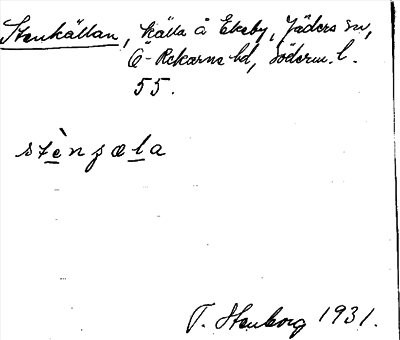 Stenkällan, källa å Ekeby, Jäders sn,
Ö-Rekarne hd, Söderm. l.
55.
stènʒæla
T. Stenborg 1931.